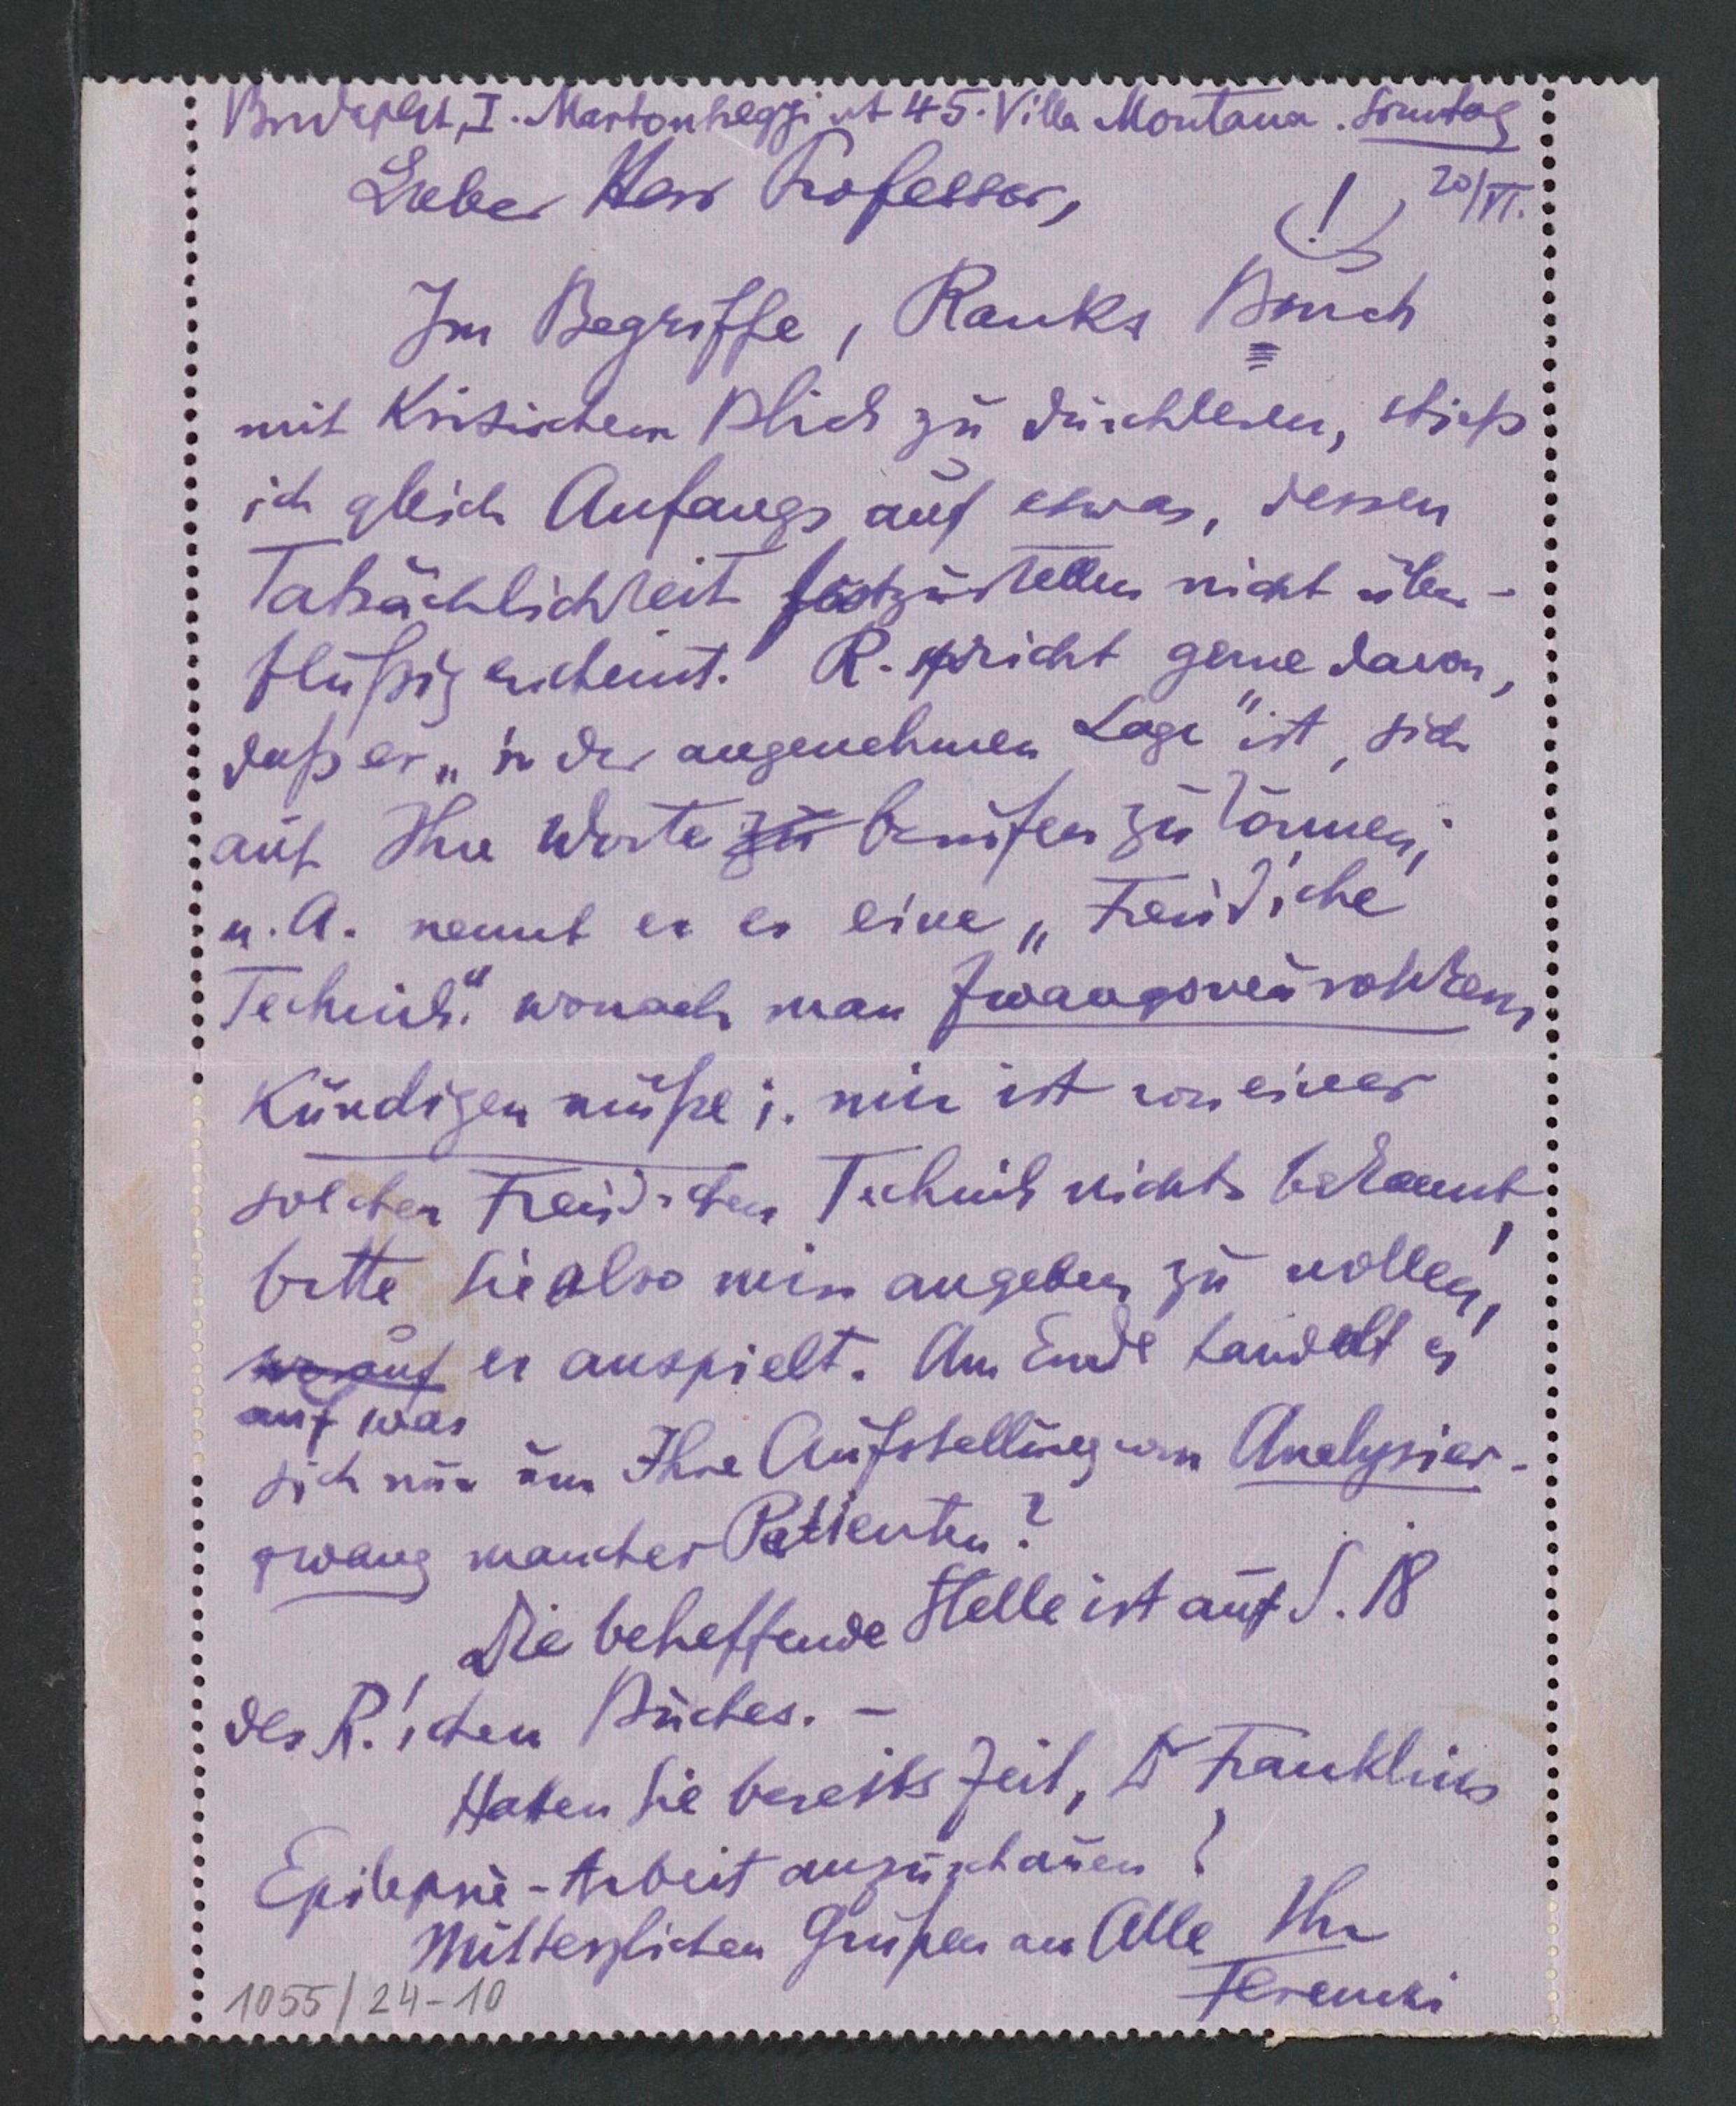 Budapest, I. Martonhegyi ut 45. Villa Montana. Sonntag
20/VI.
Lieber Herr Professor,
(!)
Im Begriffe, Ranks Buch
mit kritischem Blick zu durchlesen, stieß
ich gleich Anfangs auf etwas, dessen
Tatsächlichkeit festzustellen nicht über-
flüßig erscheint. R. spricht gerne davon,
daß er „in der angenehmen Lage" ist, sich
auf Ihre Worte zu berufen zu können;
u. A. nennt er es eine „Freud'sche
Technik" wonach man Zwangsneurotikern
kündigen müße; mir ist von einer
solchen Freud'schen Technik nichts bekannt,
bitte Sie also mir angeben zu wollen,
worauf er anspielt. Am Ende handelt es
auf was
sich nur um Ihre Aufstellung vom Analysier-
zwang mancher Patienten?
Die betreffende Stelle ist auf S. 18
des R.'schen Buches. –
Haben Sie bereits Zeit, Dr Franklins
Epilepsie-Arbeit anzuschauen?
Mit herzlichen Grüßen an Alle Ihr
Ferenczi
1055/24-10